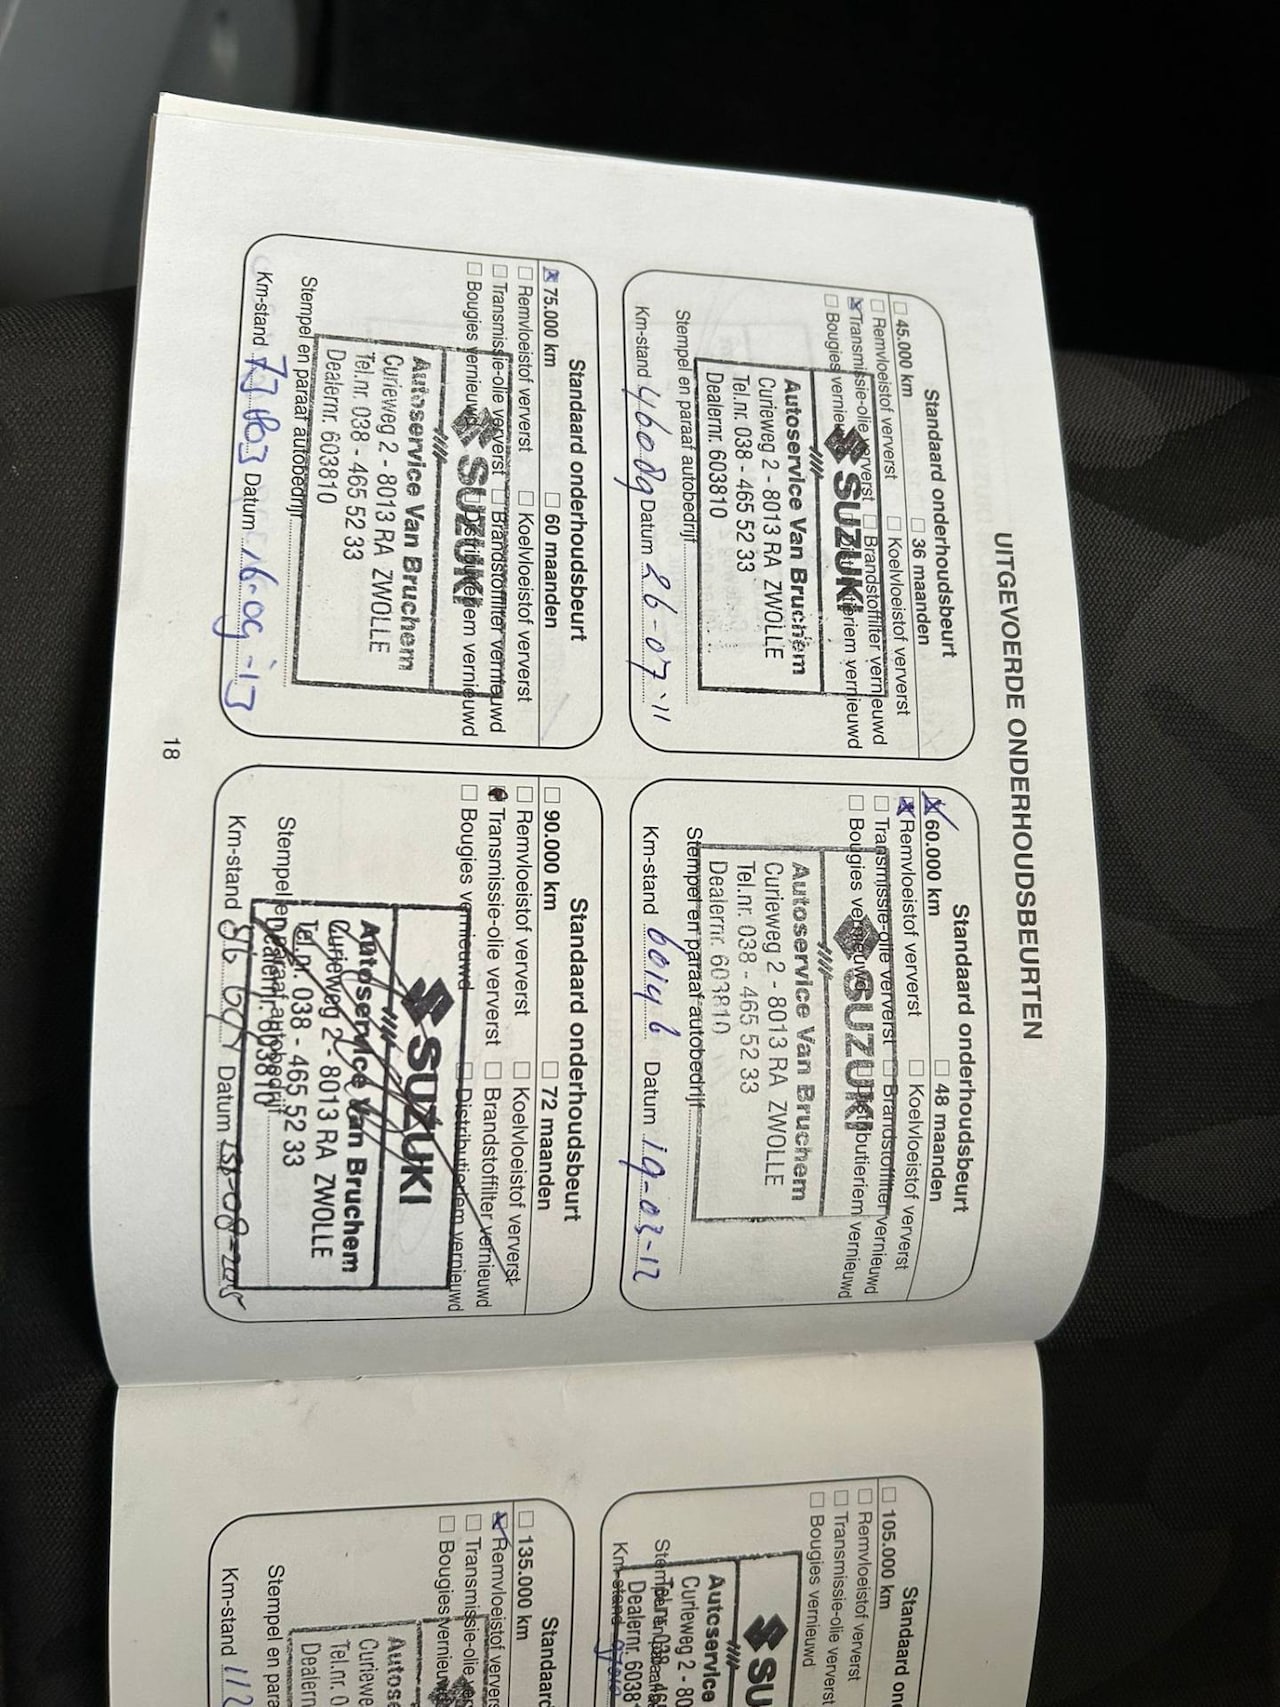 UITGEVOERDE ONDERHOUDSBEURTEN
Standaard onderhoudsbeurt
45.000 km 36 maanden
Remvloeistof ververst Koelvloeistof ververst
Transmissie-olie ververst Brandstoffilter vernieuwd
Bougies vernieuwd Distributieriem vernieuwd
SUZUKI
Autoservice Van Bruchem
Curieweg 2 - 8013 RA ZWOLLE
Tel.nr. 038 - 465 52 33
Dealernr. 603810
Stempel en paraaf autobedrijf
Km-stand 46089 Datum 26-07-'11
Standaard onderhoudsbeurt
60.000 km 48 maanden
Remvloeistof ververst Koelvloeistof ververst
Transmissie-olie ververst Brandstoffilter vernieuwd
Bougies vernieuwd Distributieriem vernieuwd
SUZUKI
Autoservice Van Bruchem
Curieweg 2 - 8013 RA ZWOLLE
Tel.nr. 038 - 465 52 33
Dealernr. 603810
Stempel en paraaf autobedrijf
Km-stand 60146 Datum 19-03-12
Standaard onderhoudsbeurt
75.000 km 60 maanden
Remvloeistof ververst Koelvloeistof ververst
Transmissie-olie ververst Brandstoffilter vernieuwd
Bougies vernieuwd Distributieriem vernieuwd
SUZUKI
Autoservice Van Bruchem
Curieweg 2 - 8013 RA ZWOLLE
Tel.nr. 038 - 465 52 33
Dealernr. 603810
Stempel en paraaf autobedrijf
Km-stand Datum 16-09-'13
Standaard onderhoudsbeurt
90.000 km 72 maanden
Remvloeistof ververst Koelvloeistof ververst
Transmissie-olie ververst Brandstoffilter vernieuwd
Bougies vernieuwd Distributieriem vernieuwd
SUZUKI
Autoservice Van Bruchem
Curieweg 2 - 8013 RA ZWOLLE
Tel.nr. 038 - 465 52 33
Dealernr. 603810
Stempel en paraaf autobedrijf
Km-stand Datum
18
Standaard on
105.000 km
Remvloeistof ververst
Transmissie-olie ververst
Bougies vernieuwd
SU
Autoservice
Curieweg 2 - 80
Tel.nr. 038 - 465
Dealernr. 6038
Km-stand
Standaard
135.000 km
Remvloeistof ververs
Transmissie-olie ver
Bougies vernieuw
Autos
Curiewe
Tel.nr. 0
Dealern
Stempel en para
Km-stand 112